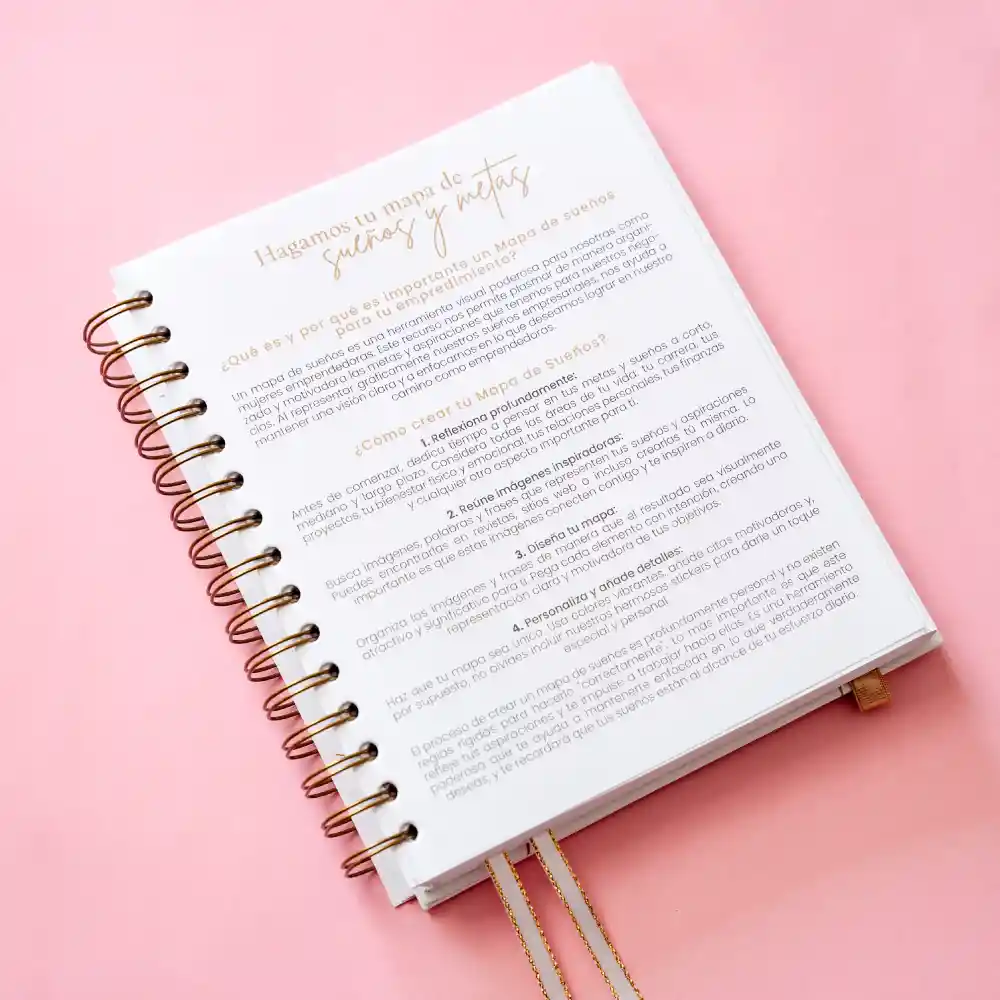 Hagamos tu mapa de
sueños y metas
¿Qué es y por qué es importante un Mapa de sueños
para tu empredimiento?
Un mapa de sueños es una herramienta visual poderosa para nosotras como
mujeres emprendedoras. Este recurso nos permite plasmar de manera organi-
zada y motivadora las metas y aspiraciones que tenemos para nuestros nego-
cios. Al representar gráficamente nuestros sueños empresariales, nos ayuda a
mantener una visión clara y a enfocarnos en lo que deseamos lograr en nuestro
camino como emprendedoras.
¿Cómo crear tu Mapa de Sueños?
1. Reflexiona profundamente:
Antes de comenzar, dedica tiempo a pensar en tus metas y sueños a corto,
mediano y largo plazo. Considera todas las áreas de tu vida, tu carrera, tus
proyectos, tu bienestar físico y emocional, tus relaciones personales, tus finanzas
y cualquier otro aspecto importante para ti.
2. Reúne imágenes inspiradoras:
Busca imágenes, palabras y frases que representen tus sueños y aspiraciones
Puedes encontrarlas en revistas, sitios web o incluso crearlas tú misma. Lo
importante es que estas imágenes conecten contigo y te inspiren a diario.
3. Diseña tu mapa:
Organiza las imágenes y frases de manera que el resultado sea visualmente
atractivo y significativo para ti. Pega cada elemento con intención, creando una
representación clara y motivadora de tus objetivos.
4. Personaliza y añade detalles:
Haz que tu mapa sea único. Usa colores vibrantes, añade citas motivadoras y,
por supuesto, no olvides incluir nuestros hermosos stickers para darle un toque
especial y personal.
El proceso de crear un mapa de sueños es profundamente personal y no existen
reglas rígidas para hacerlo "correctamente". Lo más importante es que este
refleje tus aspiraciones y te impulse a trabajar hacia ellas. Es una herramienta
poderosa que te ayuda a mantenerte enfocada en lo que verdaderamente
deseas, y te recordará que tus sueños están al alcance de tu esfuerzo diario.